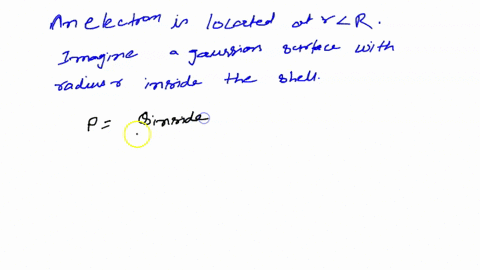 An electron is located at r < R.
Imagine a gaussian surface with
radius r inside the shell.
ρ = Qinside